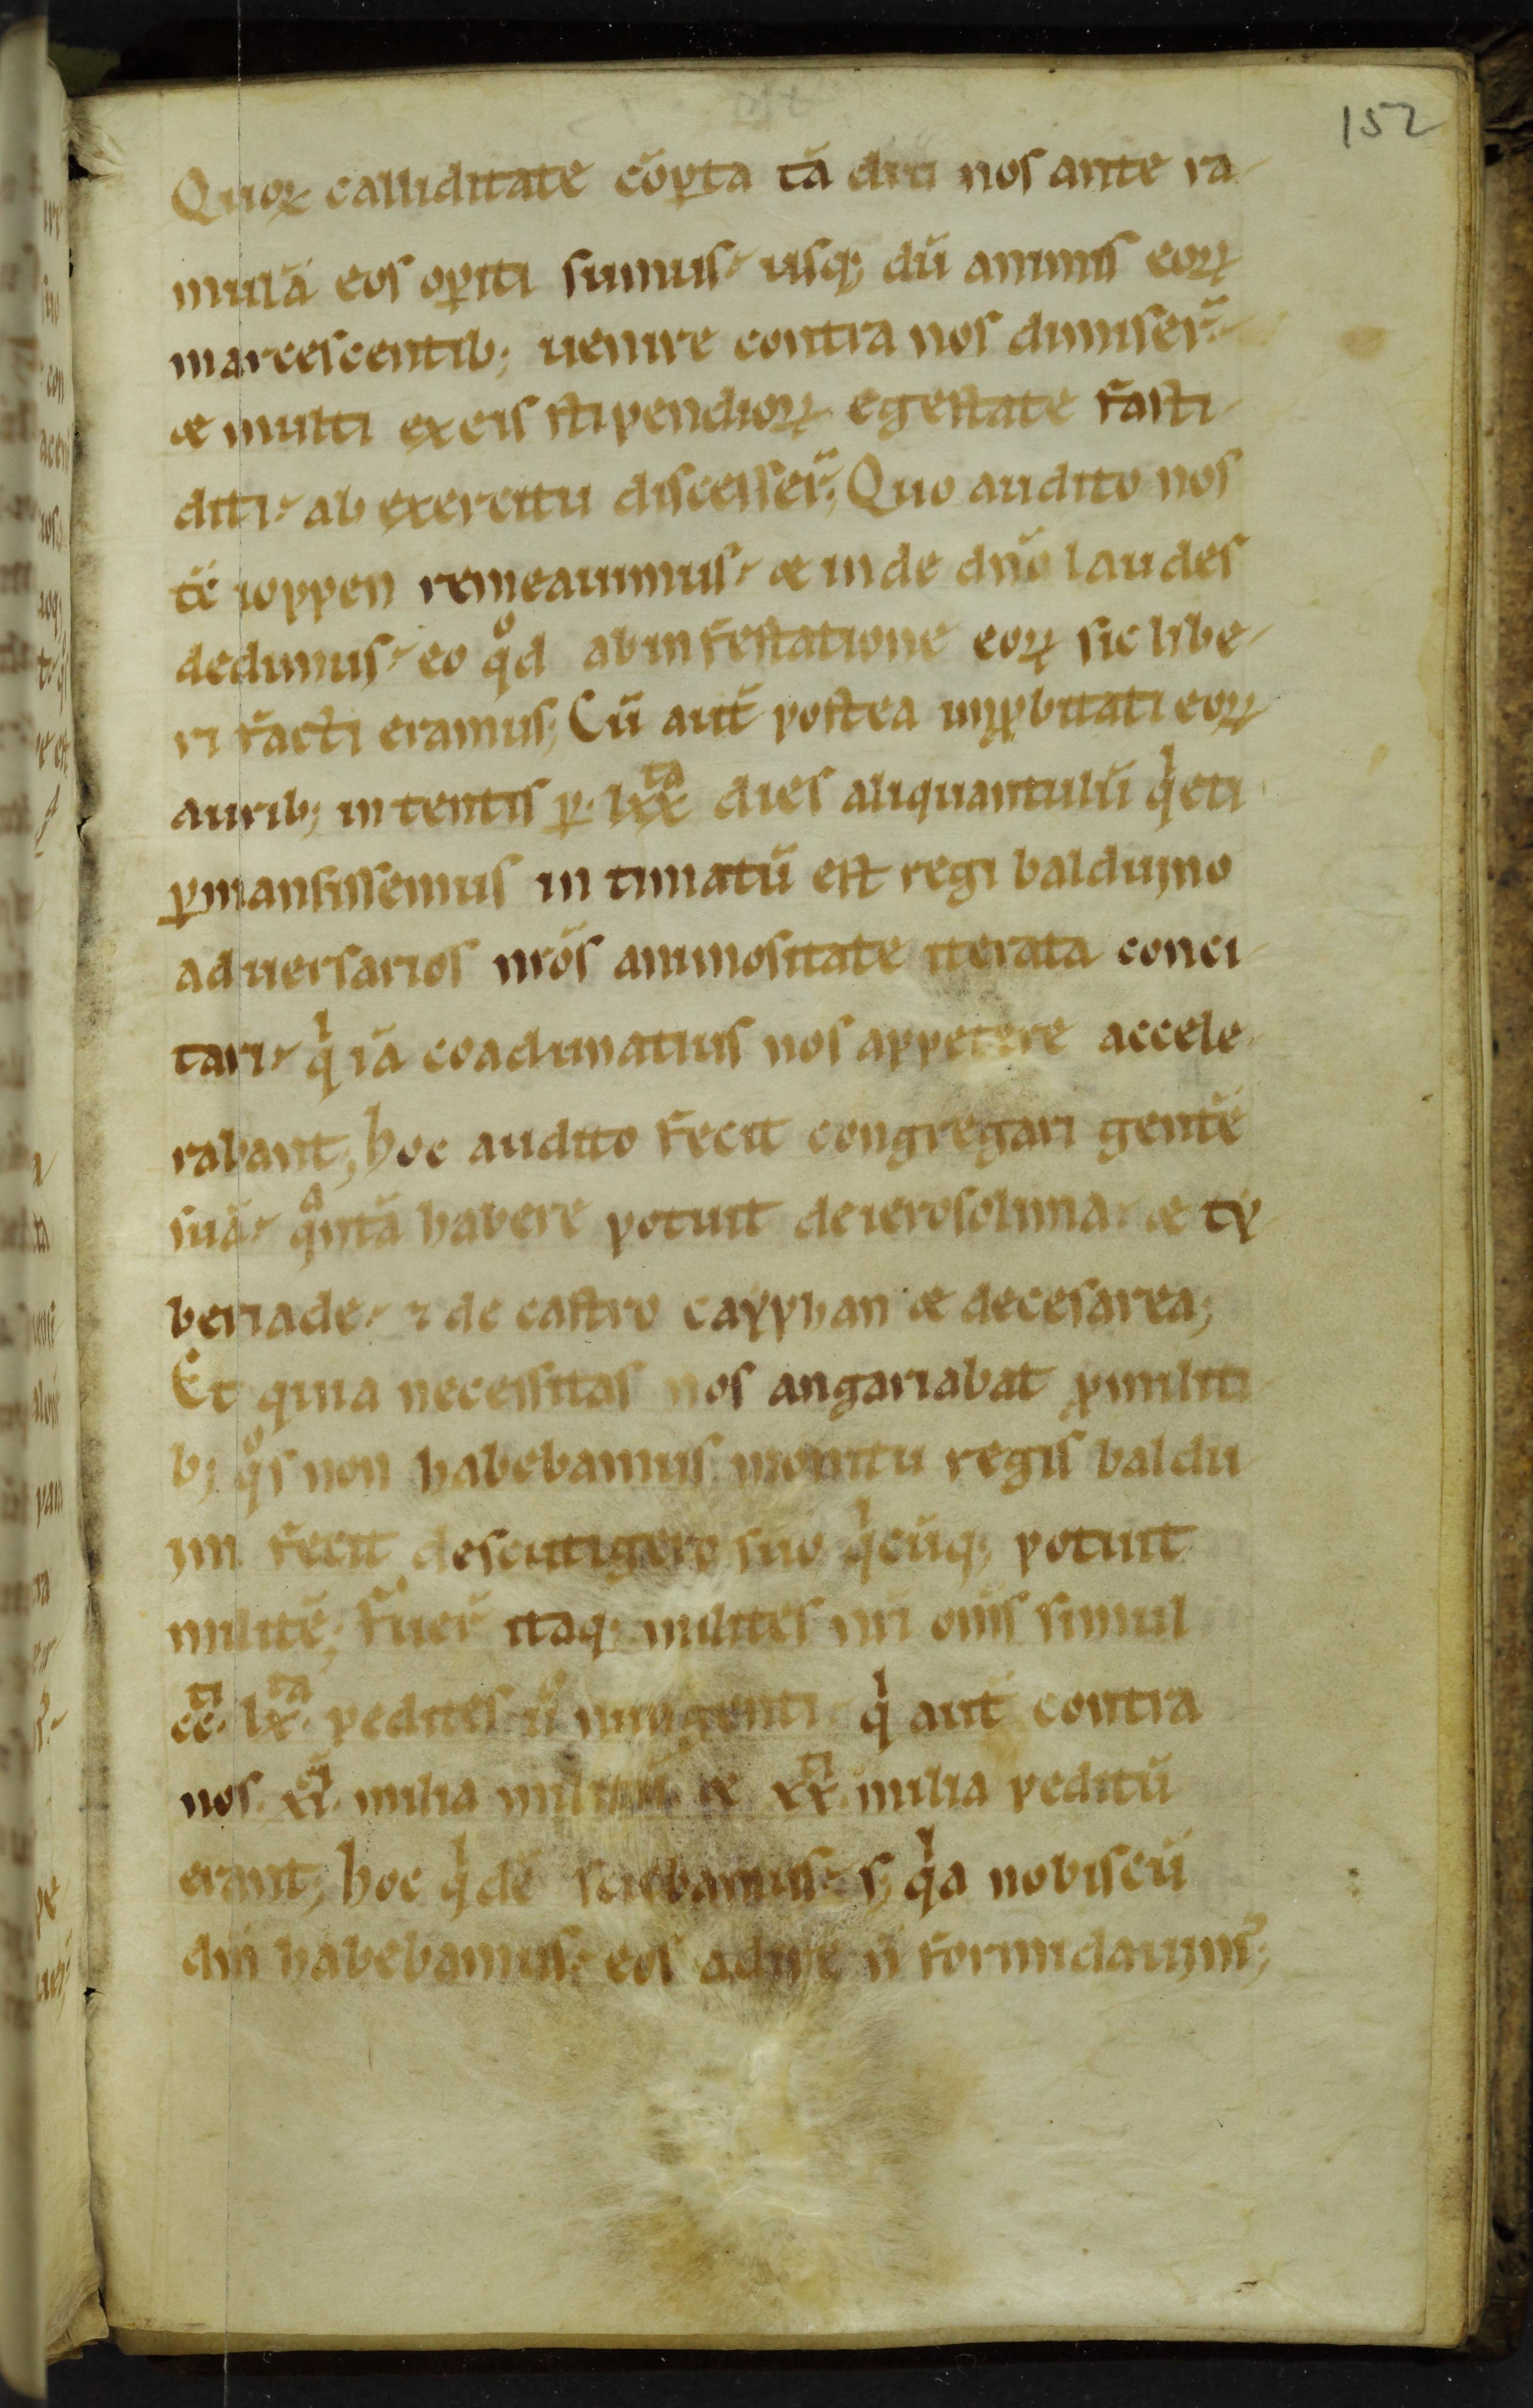 152
Quoꝝ calliditate cōꝑta tā diu nos ante ra
mulā eos oꝑiti sumus usq; dū animis eoꝝ
marcescentib; uenire contra nos dimiser̄
& multi ex eis stipendioꝝ egestate fasti
diti ab exercitu discesser̄; Quo audito nos
tē ioppen remeauimus & inde dn̄o laudes
dedimus eo qͦd ab infestatione eoꝝ sic libe
ri facti eramus; Cū aut̄ postea imꝓbitati eoꝝ
aurib; intentis ꝑ lxxᵗᵃ dies aliquantulū qⁱeti
ꝑmansissemus intimatū est regi balduino
aduersarios nr̄os animositate iterata conci
tari qⁱ iā coadunatius nos appetere accele
rabant; hoc audito fecit congregari gentē
suā qᵃntā habere potuit de ierosolima & ty
beriade ⁊ de castro cayphan & de cesarea;
Et quia necessitas nos angariabat ꝓ militi
b; qͦs non habebamus monitu regis baldu
ini fecit de scutigero suo qⁱcūq; potuit
militē; fuer̄ itaq; milites nr̄i om̄s simul
ccᵗⁱ lxᵗᵃ pedites uͦ nungenti qⁱ aut̄ contra
nos xi milia militū & xxᵗⁱ milia peditū
erant; hoc qⁱdē sciebamus s; qⁱa nobiscū
dm̄ habebamus eos adire n̄ formidauim᷒;